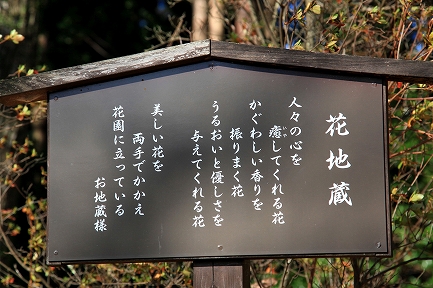 花地蔵
人々の心を
癒してくれる花
かぐわしい香りを
振りまく花
うるおいと優しさを
与えてくれる花
美しい花を
両手でかかえ
花園に立っている
お地蔵様